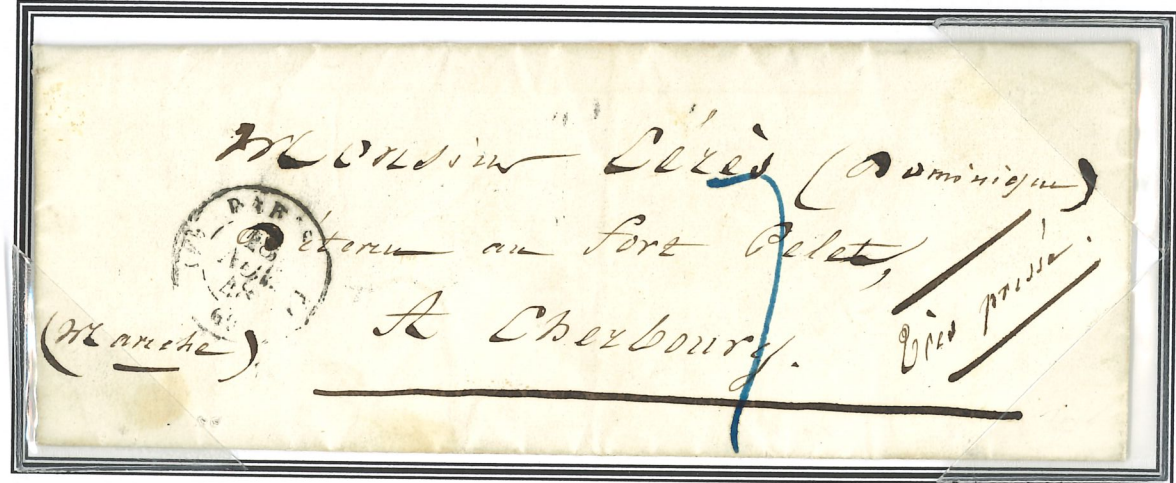 Monsieur Cérès (Dominique)
Détenu au fort Pelet,
A Cherbourg.
(Manche).
Très pressé.
PARIS
AOU
7